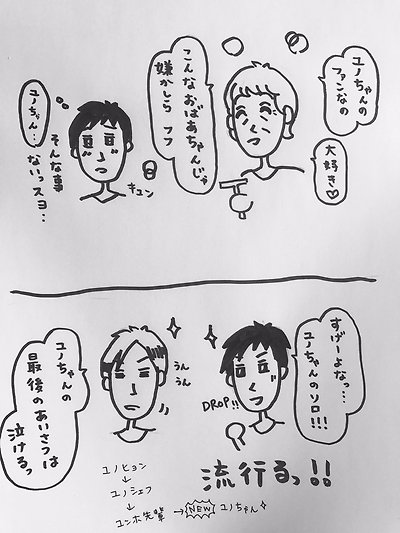 ユノちゃんの
ファンなの
大好き♡
こんなおばあちゃんじゃ
嫌かしら フフ
ユノちゃん…
そんな事
ないっスヨ…
キュン
すげーよなっ…
ユノちゃんのソロ!!!
DROP!!
うん
うん
ユノちゃんの
最後のあいさつは
泣けるっ
流行るっ!!
ユノヒョン
↓
ユノシェフ
↓
ユンホ先輩 → NEW ユノちゃん